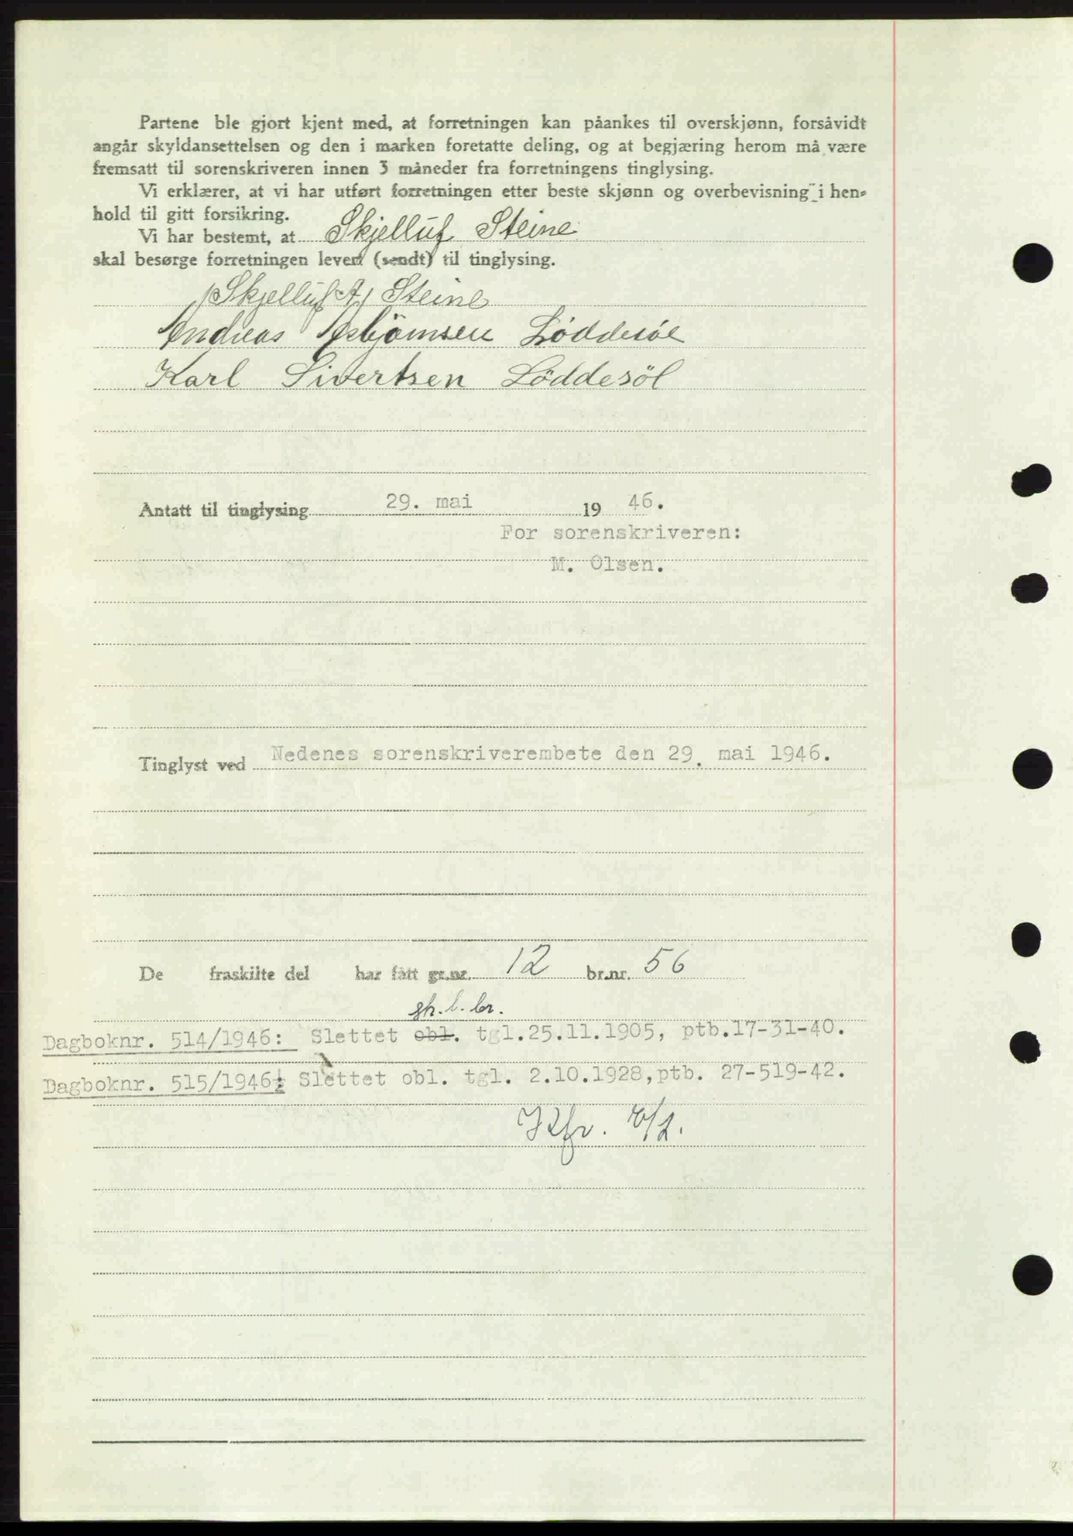 Partene ble gjort kjent med, at forretningen kan påankes til overskjønn, forsåvidt
angår skyldansettelsen og den i marken foretatte deling, og at begjæring herom må være
fremsatt til sorenskriveren innen 3 måneder fra forretningens tinglysing.
Vi erklærer, at vi har utført forretningen etter beste skjønn og overbevisning i hen-
hold til gitt forsikring.
Vi har bestemt, at Skjelluf Steine
skal besørge forretningen levert (sendt) til tinglysing.
Skjelluf A. Steine
Andreas Løddesøl
Karl Sivertsen Løddesøl
Antatt til tinglysing 29. mai 19 46.
For sorenskriveren:
M. Olsen.
Tinglyst ved Nedenes sorenskriverembete den 29. mai 1946.
De fraskilte del har fått gr.nr. 12 br.nr. 56
Dagboknr. 514/1946: Slettet obl. tgl.25.11.1905, ptb.17-31-40.
Dagboknr. 515/1946: Slettet obl. tgl. 2.10.1928,ptb. 27-519-42.